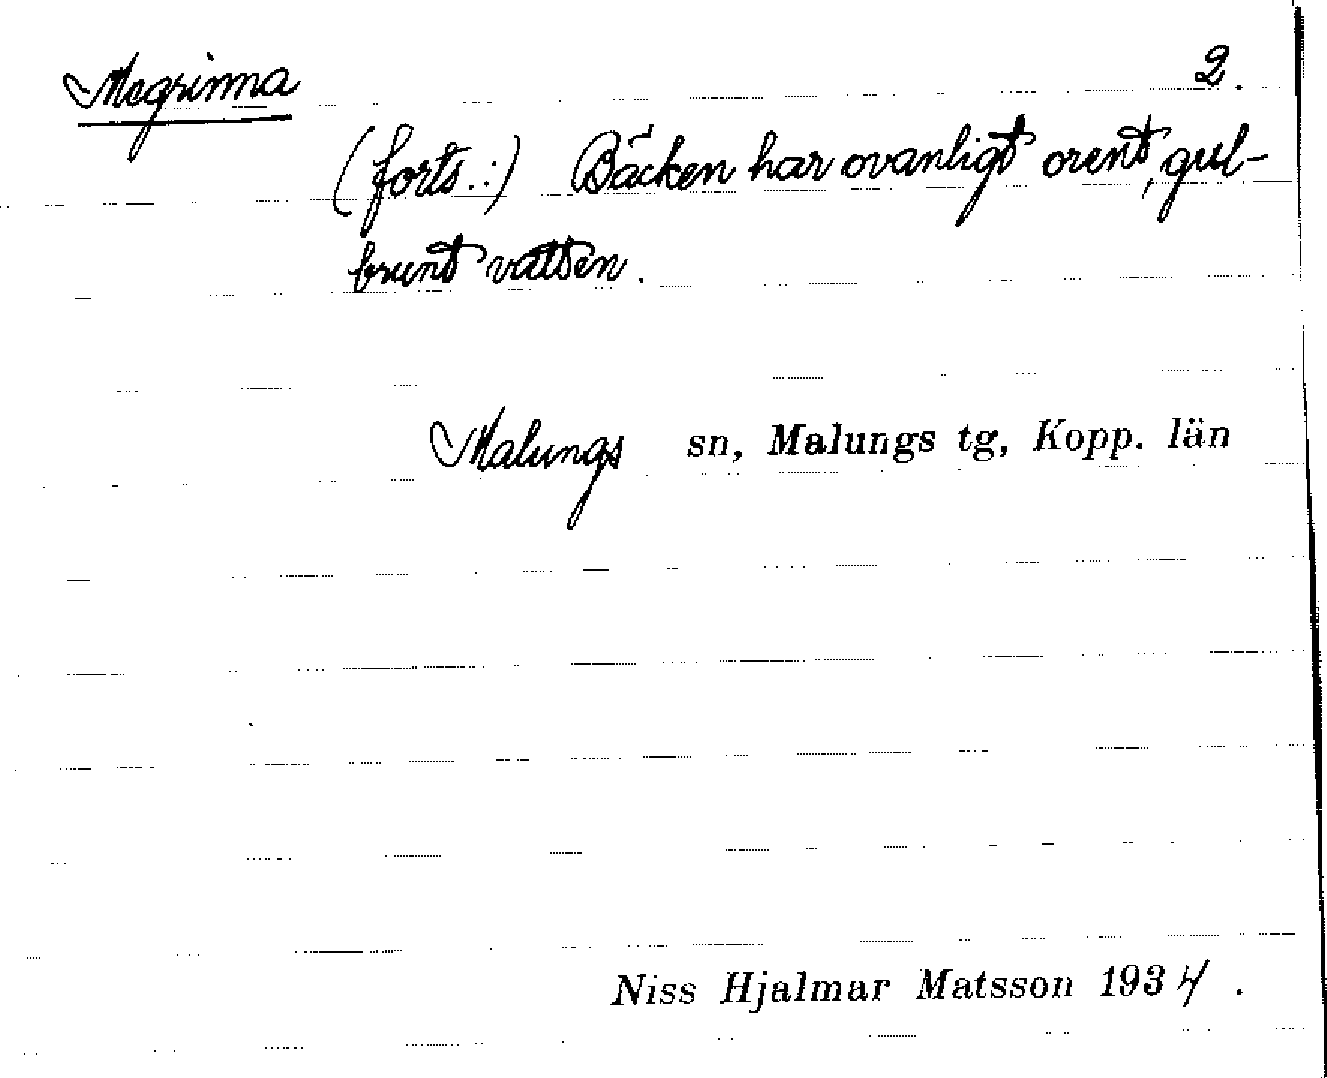 Megrinna 2.
(forts.:) Bäcken har ovanligt orent, gul-
brunt vatten.
Malungs sn, Malungs tg, Kopp. län
Niss Hjalmar Matsson 1934.